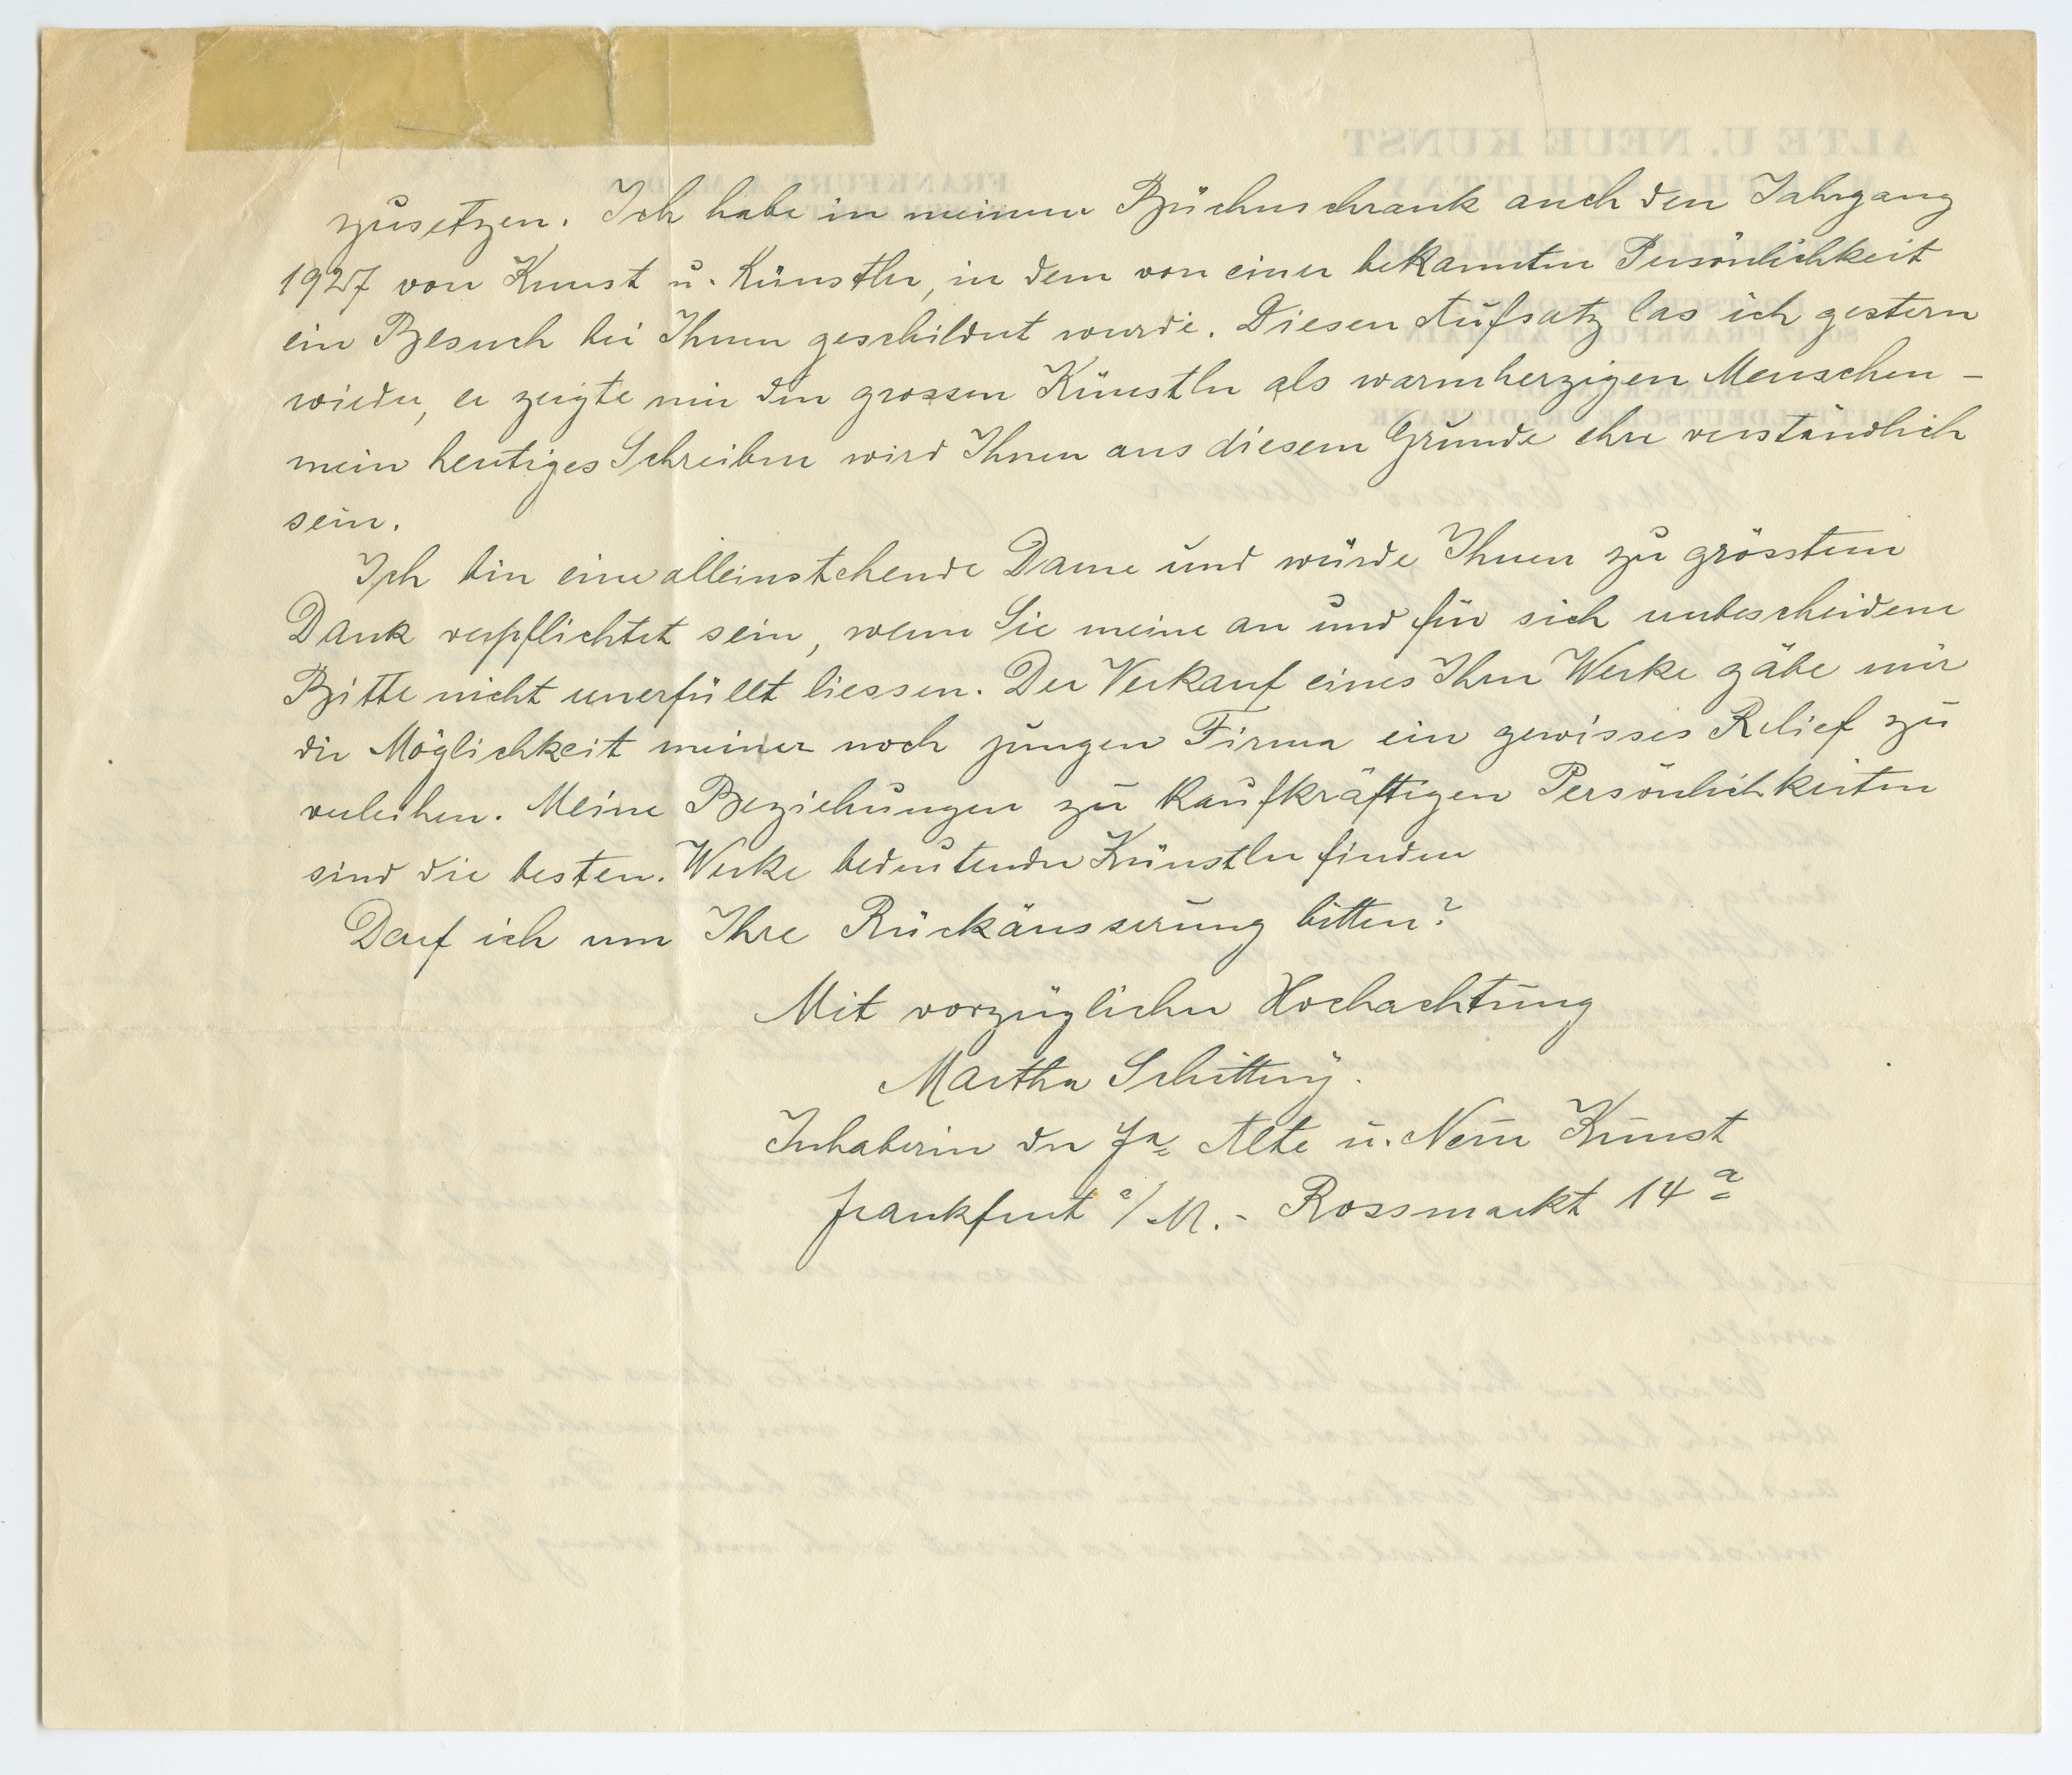 zusetzen. Ich habe in meinem Bücherschrank auch den Jahrgang
1927 von Kunst u. Künstler, in dem von einer bekannten Persönlichkeit
ein Besuch bei Ihnen geschildert wurde. Diesen Aufsatz las ich gestern
wieder, er zeigte mir den grossen Künstler als warmherzigen Menschen –
mein heutiges Schreiben wird Ihnen aus diesem Grunde eher verständlich
sein.
Ich bin eine alleinstehende Dame und würde Ihnen zu grösstem
Dank verpflichtet sein, wenn Sie meine an und für sich unbescheidene
Bitte nicht unerfüllt liessen. Der Verkauf eines Ihrer Werke gäbe mir
die Möglichkeit meiner noch jungen Firma ein gewisses Relief zu
verleihen. Meine Beziehungen zu kaufkräftigen Persönlichkeiten
sind die besten. Werke bedeutender Künstler finden
Darf ich um Ihre Rückäusserung bitten?
Mit vorzüglicher Hochachtung
Martha Schittny.
Inhaberin der Fa. Alte u. Neue Kunst
Frankfurt a/M. - Rossmarkt 14a